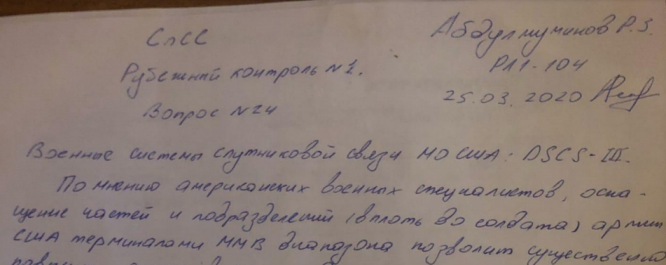 СпСС
Абдулмуминов Р.З.
Рубежный контроль №1.
РЛ1-104
25.03.2020
Вопрос №24
Военные системы спутниковой связи МО США: DSCS-III.
По мнению американских военных специалистов, осна-
щение частей и подразделений (вплоть до солдата) армии
США терминалами ММВ диапазона позволит существенно